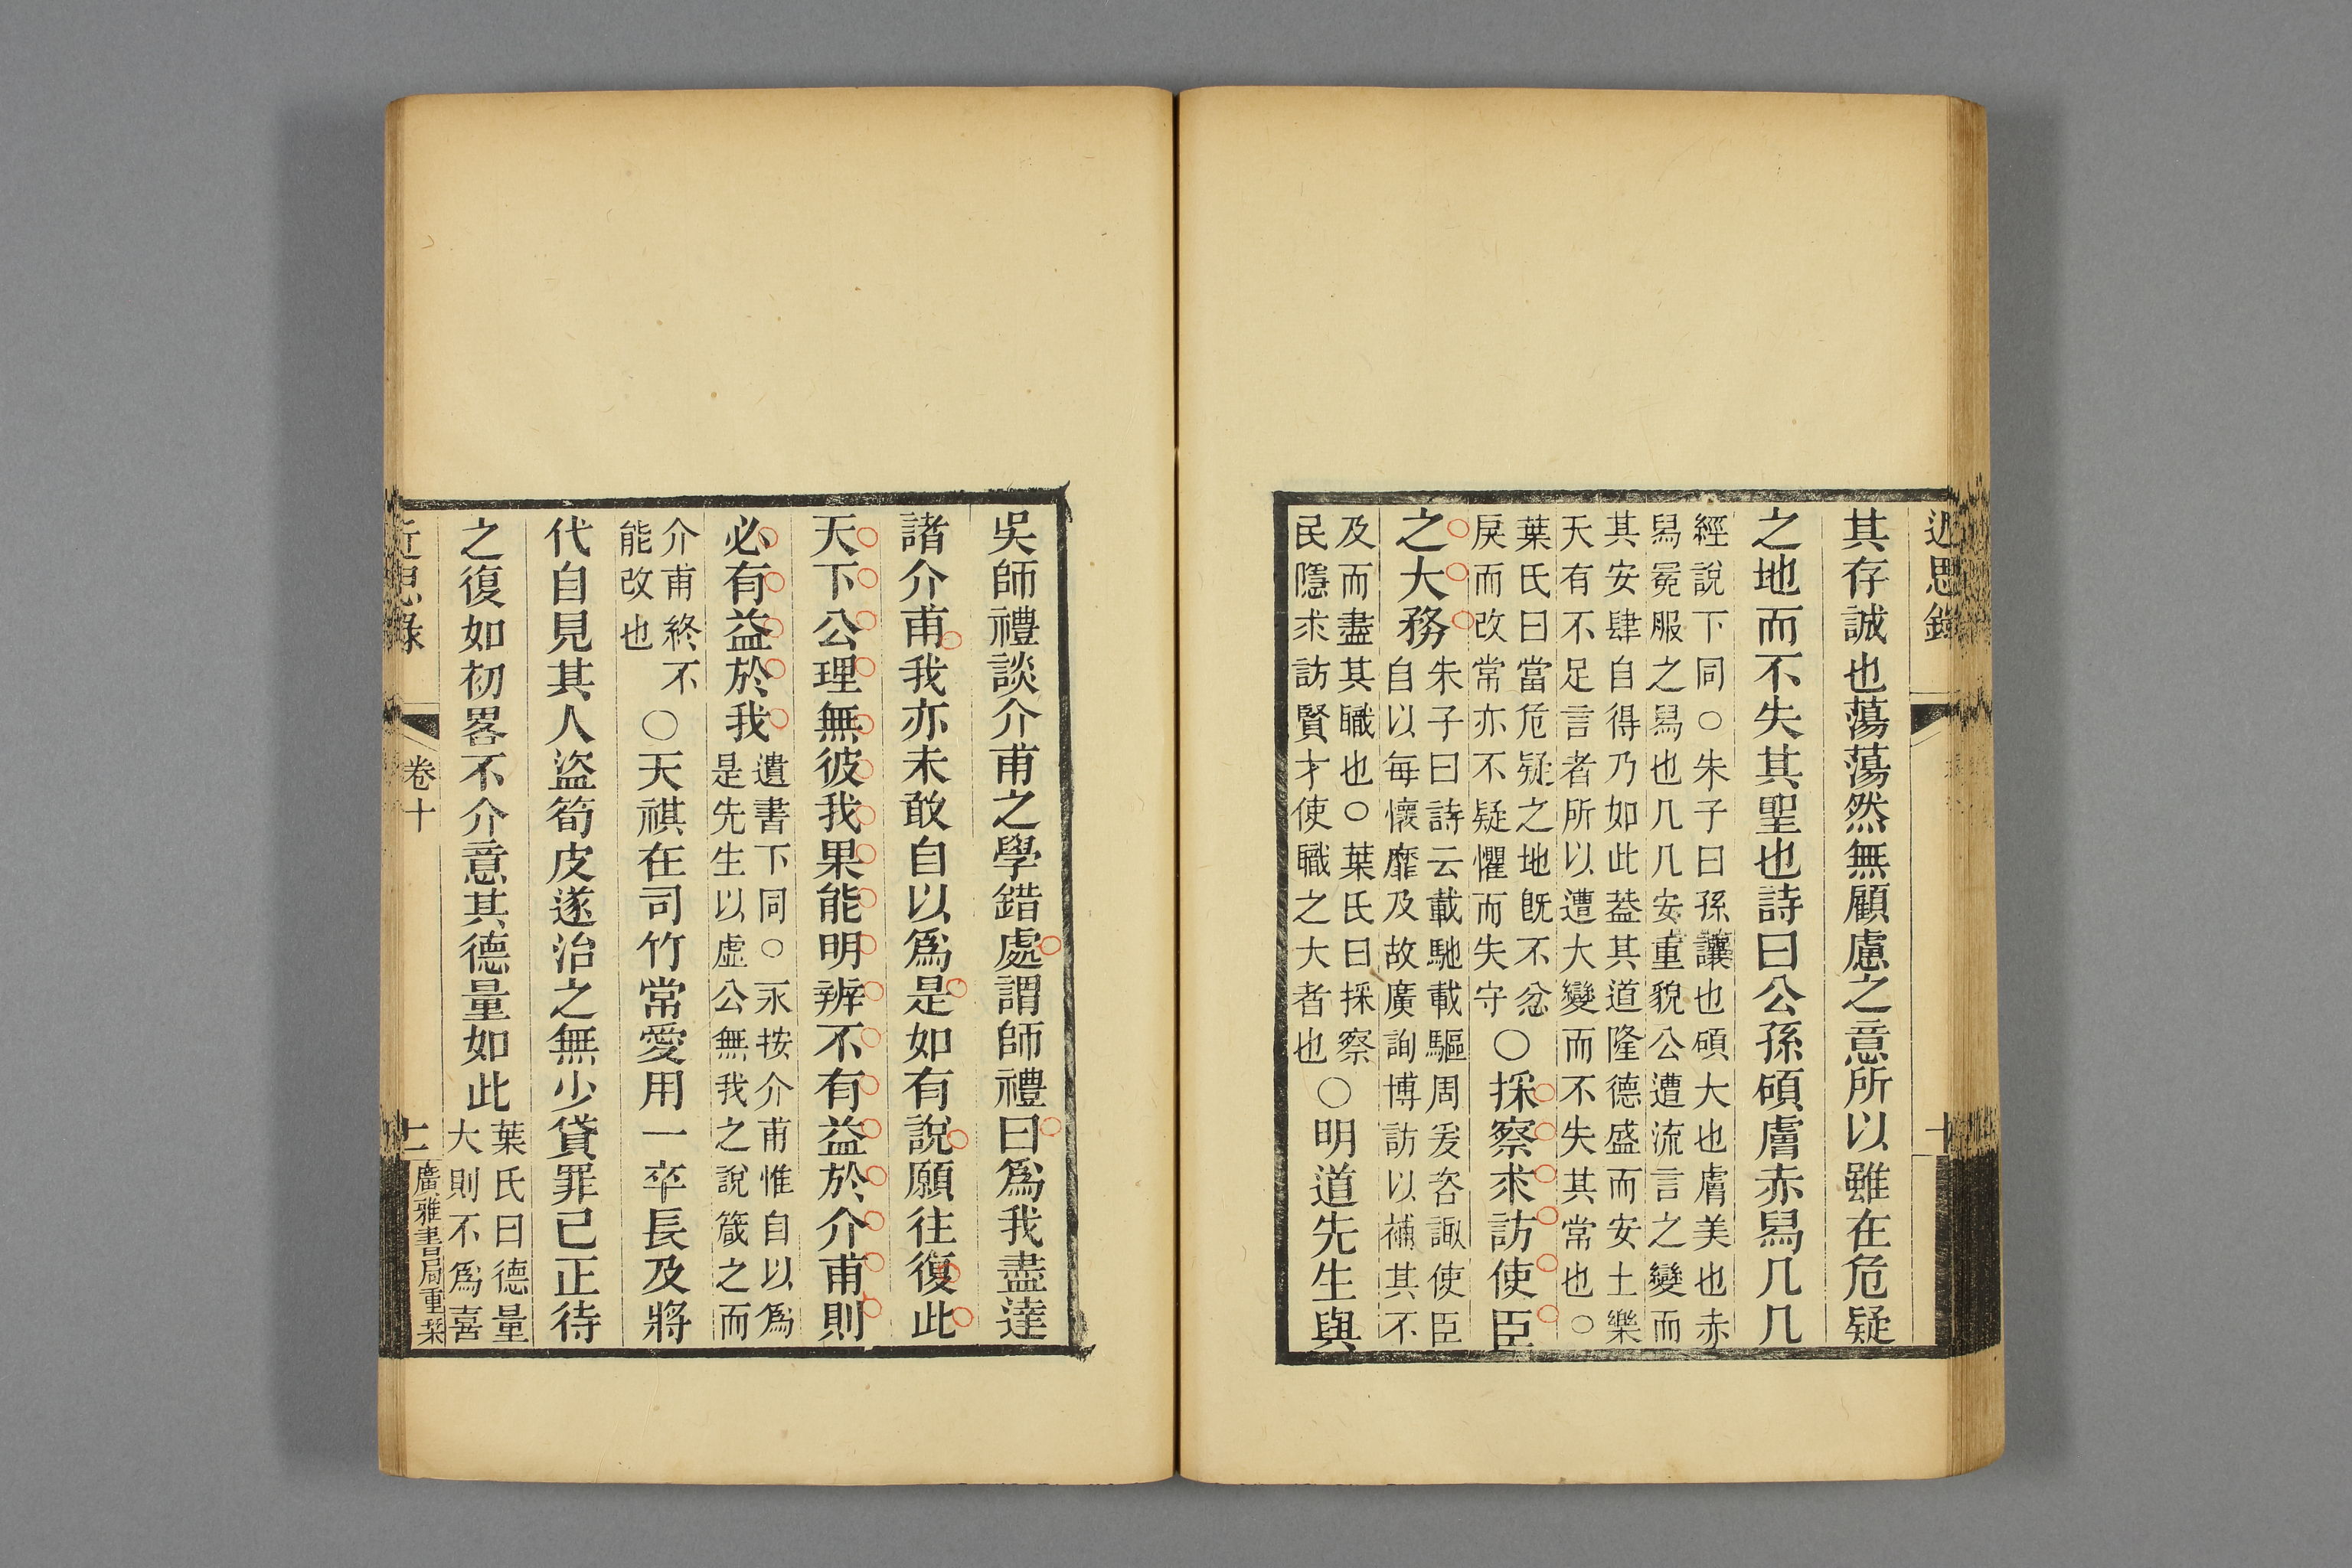 近思錄
其存誠也蕩蕩然無顧慮之意所以雖在危疑
之地而不失其聖也詩曰公孫碩膚赤舄几几
經說下同○朱子曰孫讓也碩大也膚美也赤
舄冕服之舄也几几安重貌公遭流言之變而
其安肆自得乃如此葢其道隆德盛而安土樂
天有不足言者所以遭大變而不失其常也○
葉氏曰當危疑之地旣不忿
戾而改常亦不疑懼而失守
○採察求訪使臣
之大務
朱子曰詩云載馳載驅周爰咨諏使臣
自以每懷靡及故廣詢博訪以補其不
及而盡其職也○葉氏曰採察
民隱求訪賢才使職之大者也
○明道先生與
吳師禮談介甫之學錯處謂師禮曰爲我盡達
諸介甫我亦未敢自以爲是如有說願往復此
天下公理無彼我果能明辨不有益於介甫則
必有益於我
遺書下同○永按介甫惟自以爲
是先生以虛公無我之說箴之而
介甫終不
能改也
○天祺在司竹常愛用一卒長及將
代自見其人盜筍皮遂治之無少貸罪已正待
之復如初畧不介意其德量如此
葉氏曰德量
大則不爲喜
近思錄
卷十
廣雅書局重栞